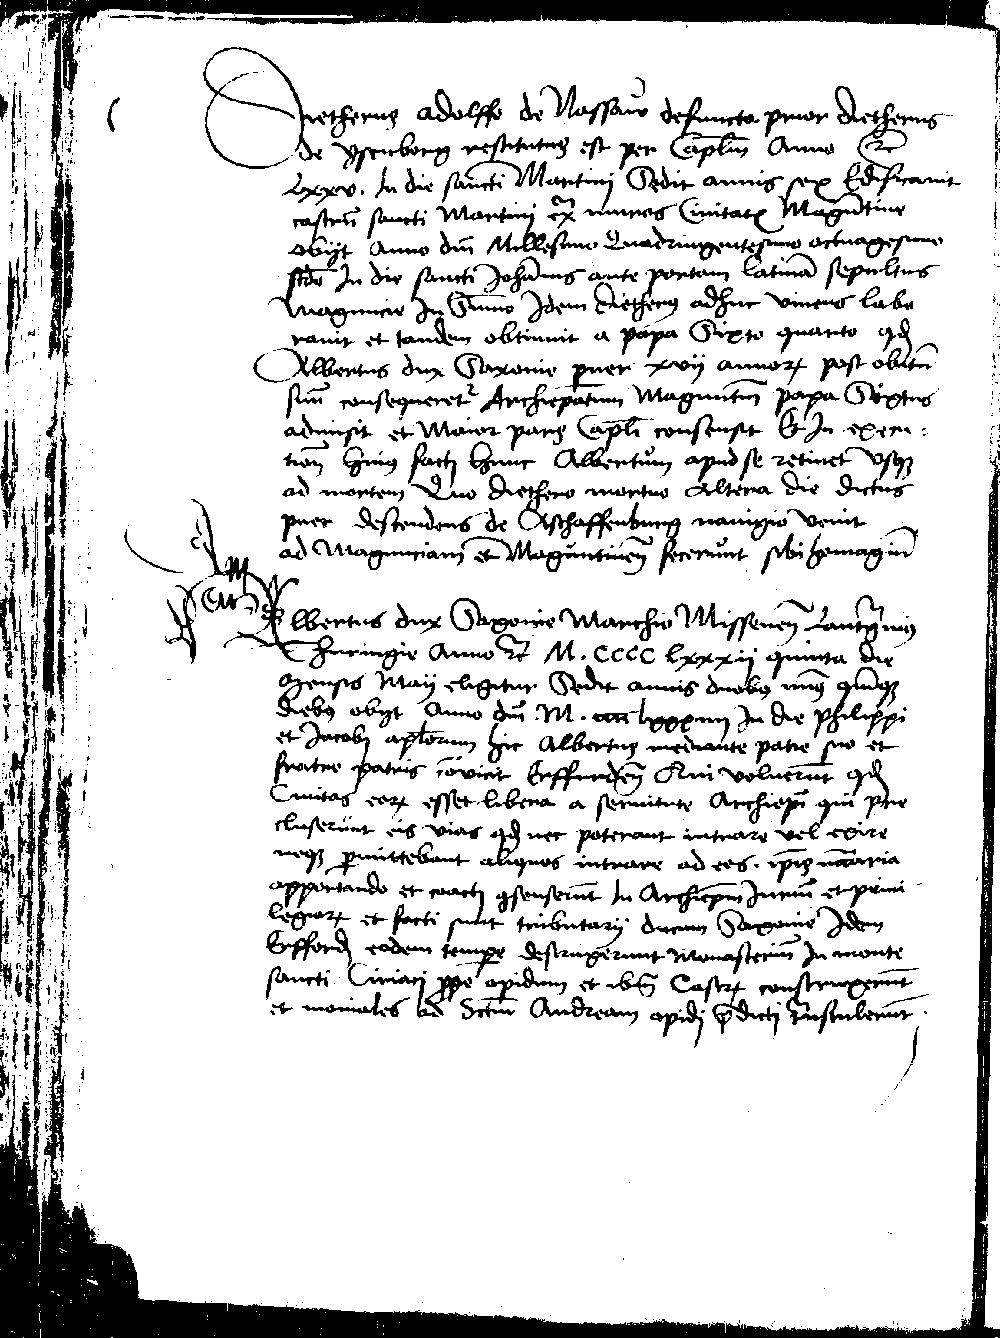 Dietherus Adolffo de Nassaw defuncto prior dietherus
de ysenborg restitutus est per Caplm Anno &c
Lxxv. In die sancti Martini Sedit annis sex Edificavit
castrũ sancti Martini ex muros Civitatis Maguntine
obijt Anno dñi Millesimo Quadringentesimo octuagesimo
scdo In die sancti Johannis ante portam latinã sepultus
Maguncie In Sũmo Idem dietherus adhuc vivens labo
ravit et tandem obtinuit a papa Sixto quarto qd
Albertus dux Saxonie puer xvij annorũ post obitũ
suũ consequeretr Archiepatum Maguntinũ papa Sixtus
admisit et Maior pars Capli consensit Et In execu:
tionẽ huius facti hunc Albertum apud se retinet usque
ad mortem Quo diethero mortuo altera die dictus
puer descendens de Aschaffenburg navigio venit
ad Magunciam et Maguntinen fecerunt sibi homagiũ
Albertus dux Saxonie Marchio Missenen Lantgravius
Thuringie Anno &c M. CCCC lxxxij quinta die
mensis Maij eligitur Sedit annis duobus minus quinque
diebus obijt Anno dñi M. cccc lxxxiiij In die Philippi
et Jacobi aplorum hic Albertus mediante patre suo et
fratre patris Erffurden Qui voluerunt qd
Civitas eorũ esset libera a servitute Archiepi qui
cluserunt eis vias qd nec poterant intrare vel exire
neque pmittebant aliquos intrare ad eos. ipis ncćaria
apportando et coacti consenserunt In Archiepm Iurium et privi
legiorũ et facti sunt tributarij ducum Saxonie Idem
Erfford eodem tempe destruxerunt Monasterium In monte
sancti Ciriaci ppe opidum et ibm Castrũ construxerunt
et moniales ad Sctum Andream opidi pdicti transtulerunt.